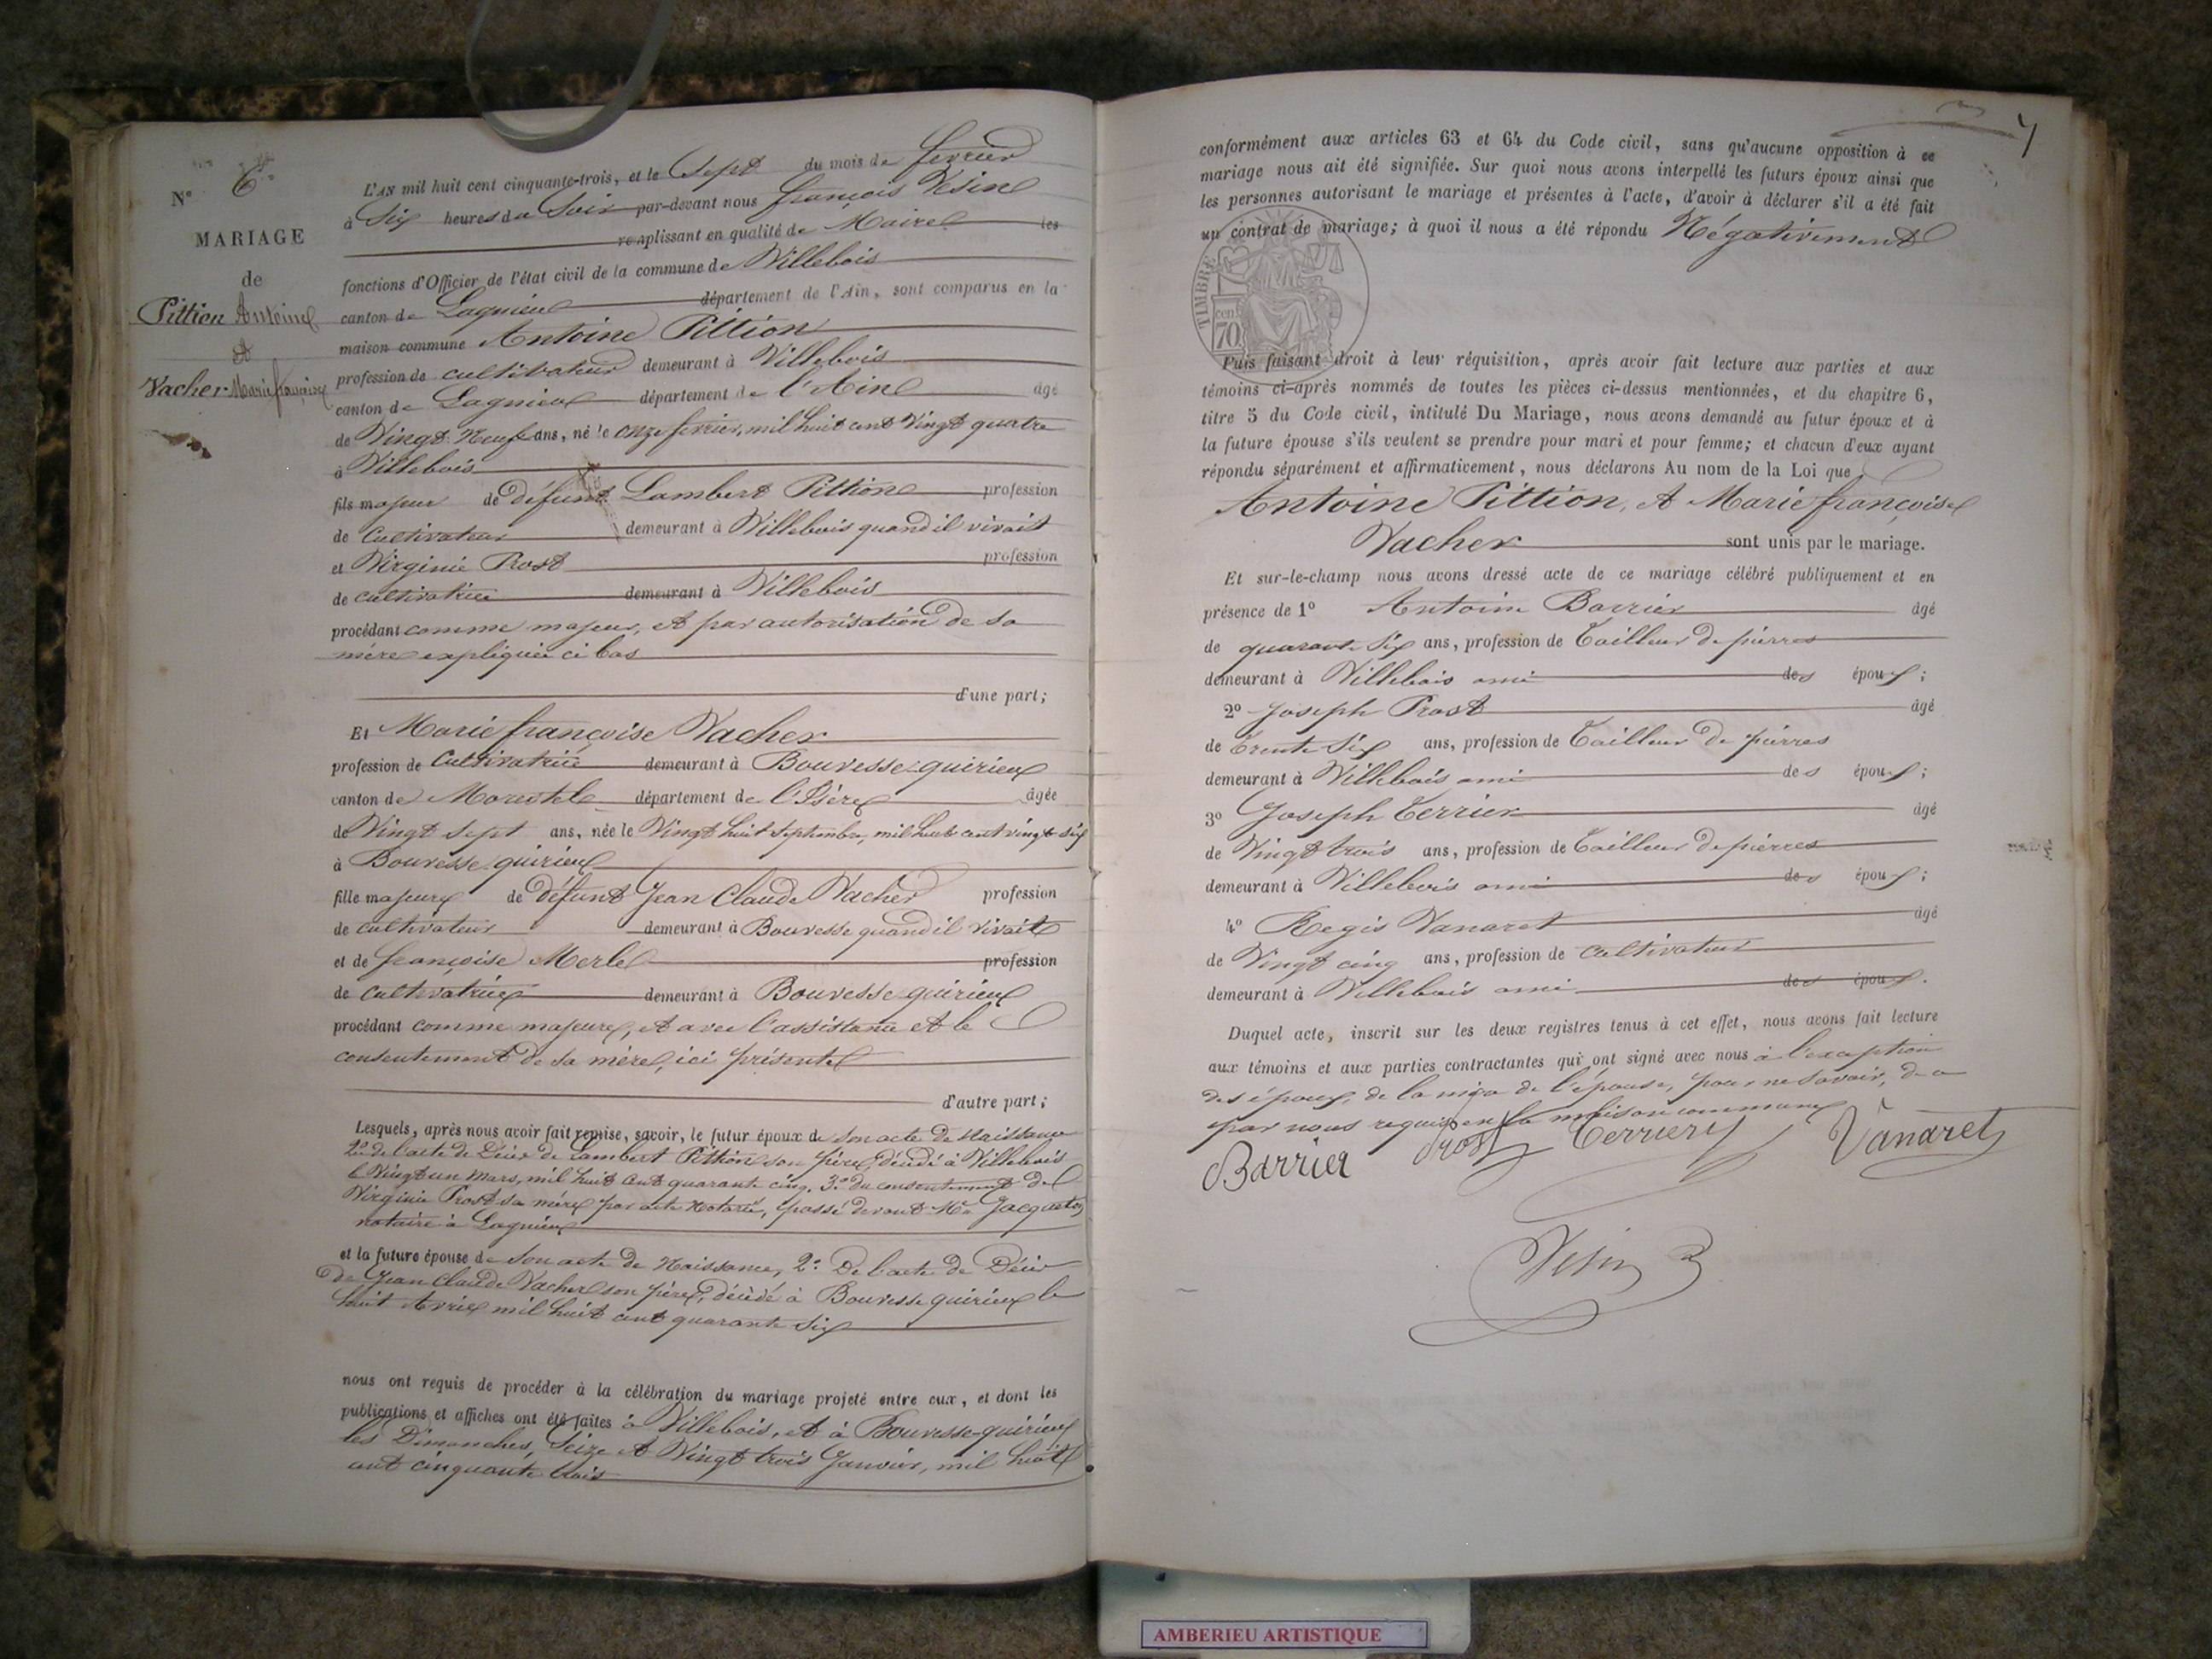 N° 6e
MARIAGE
de
Pittion Antoine
et
Vacher Marie françoise
L'AN mil huit cent cinquante-trois, et le Sept du mois de fevrier
à Six heures du Soir par-devant nous françois Vesin
remplissant en qualité de Maire les
fonctions d'Officier de l'état civil de la commune de Villebois
canton de Lagnieu département de l'Ain, sont comparus en la
maison commune Antoine Pittion
profession de cultivateur demeurant à Villebois
canton de Lagnieu département de l'Ain âgé
de Vingt Neuf ans, né le onze fevrier, mil huit cent Vingt quatre
à Villebois
fils majeur de défunt Lambert Pittion profession
de Cultivateur demeurant à Villebois quand il vivait
et Virginie Prost profession
de cultivatrice demeurant à Villebois
procédant comme majeur, et par autorisation de sa
mère expliquée ci bas
d'une part;
Et Marie françoise Vacher
profession de Cultivatrice demeurant à Bouvesse-quirieu
canton de Morestel département de l'Isère âgée
de Vingt Sept ans, née le Vingt huit Septembre, mil huit cent vingt six
à Bouvesse-quirieu
fille majeure de défunt Jean Claude Vacher profession
de cultivateur demeurant à Bouvesse quand il vivait
et de françoise Merle profession
de Cultivatrice demeurant à Bouvesse quirieu
procédant comme majeure, et avec l'assistance et le
consentement de sa mère, ici présente
d'autre part;
Lesquels, après nous avoir fait remise, savoir, le futur époux de son acte de Naissance
2° de l'acte de Décès de Lambert Pittion son père, décédé à Villebois
le Vingt un Mars, mil huit cent quarante cinq. 3° du consentement de
Virginie Prost sa mère par acte Notarié, passé devant Me Jacquet
notaire à Lagnieu
et la future épouse de son acte de Naissance, 2° De l'acte de Décès
de Jean Claude Vacher son père, décédé à Bouvesse quirieu le
huit Avril mil huit cent quarante six
nous ont requis de procéder à la célébration du mariage projeté entre eux, et dont les
publications et affiches ont été faites à Villebois, et à Bouvesse-quirieu
les Dimanches, Seize et Vingt trois Janvier, mil huit
cent cinquante trois
7
conformément aux articles 63 et 64 du Code civil, sans qu'aucune opposition à ce
mariage nous ait été signifiée. Sur quoi nous avons interpellé les futurs époux ainsi que
les personnes autorisant le mariage et présentes à l'acte, d'avoir à déclarer s'il a été fait
un contrat de mariage; à quoi il nous a été répondu Négativement
TIMBRE
cen
70
Puis faisant droit à leur réquisition, après avoir fait lecture aux parties et aux
témoins ci-après nommés de toutes les pièces ci-dessus mentionnées, et du chapitre 6,
titre 5 du Code civil, intitulé Du Mariage, nous avons demandé au futur époux et à
la future épouse s'ils veulent se prendre pour mari et pour femme; et chacun d'eux ayant
répondu séparément et affirmativement, nous déclarons Au nom de la Loi que
Antoine Pittion, et Marie françoise
Vacher sont unis par le mariage.
Et sur-le-champ nous avons dressé acte de ce mariage célébré publiquement et en
présence de 1° Antoine Barrier âgé
de quarante Six ans, profession de Tailleur de pierres
demeurant à Villebois ami des époux;
2° Joseph Prost âgé
de Trente Six ans, profession de Tailleur de pierres
demeurant à Villebois ami des époux;
3° Joseph Terrier âgé
de Vingt trois ans, profession de Tailleur de pierres
demeurant à Villebois ami des époux;
4° Regis Vanaret âgé
de Vingt cinq ans, profession de Cultivateur
demeurant à Villebois ami des époux.
Duquel acte, inscrit sur les deux registres tenus à cet effet, nous avons fait lecture
aux témoins et aux parties contractantes qui ont signé avec nous à l'exception
des époux, de la mère de l'épouse, pour ne savoir, de ce
par nous requis en la maison commune
Barrier Prost Terrier Vanaret
Vesin
AMBERIEU ARTISTIQUE